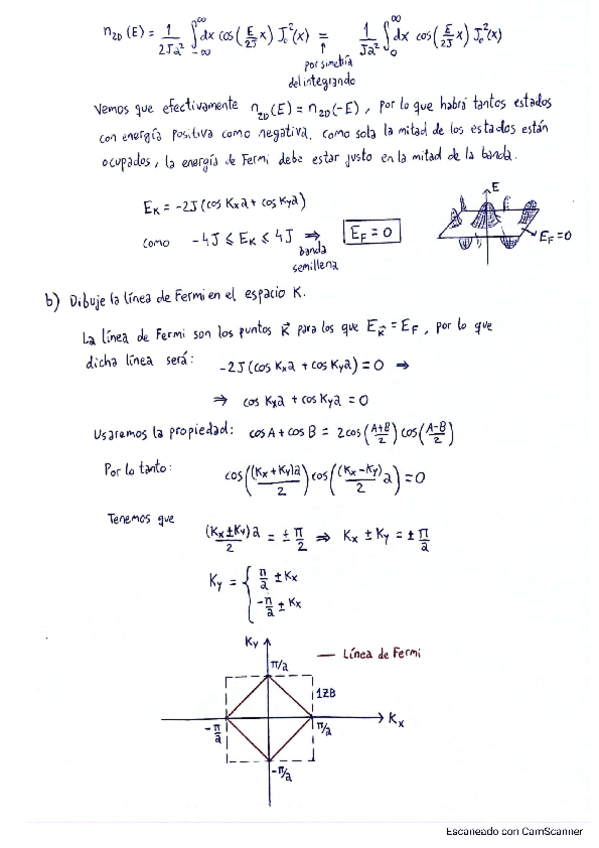 n₂D(E) = 1/(2Ja²) ∫_{-∞}^{∞} dx cos(E/2J x) J₀²(x) = 1/(Ja²) ∫_0^∞ dx cos(E/2J x) J₀²(x)
por simetría
del integrando
Vemos que efectivamente n₂D(E) = n₂D(-E), por lo que habrá tantos estados
con energía positiva como negativa. como sola la mitad de los estados están
ocupados, la energía de Fermi debe estar justo en la mitad de la banda.
E_K = -2J(cos Kxa + cos Kya)
como -4J ⩽ E_K ⩽ 4J ⇒ E_F = 0
banda
semillena
E
E_F = 0
b) Dibuje la línea de Fermi en el espacio K.
La línea de Fermi son los puntos K⃗ para los que E_K⃗ = E_F, por lo que
dicha línea será: -2J(cos Kxa + cos Kya) = 0 ⇒
⇒ cos Kxa + cos Kya = 0
Usaremos la propiedad: cos A + cos B = 2cos((A+B)/2) cos((A-B)/2)
Por lo tanto: cos((Kx + Ky)a/2) cos((Kx - Ky)/2 a) = 0
Tenemos que
(Kx ± Ky)a/2 = ± π/2 ⇒ Kx ± Ky = ± π/a
Ky = { π/a ± Kx
-π/a ± Kx
Ky
π/a
— Línea de Fermi
1ZB
-π/a
π/a
Kx
-π/a
Escaneado con CamScanner